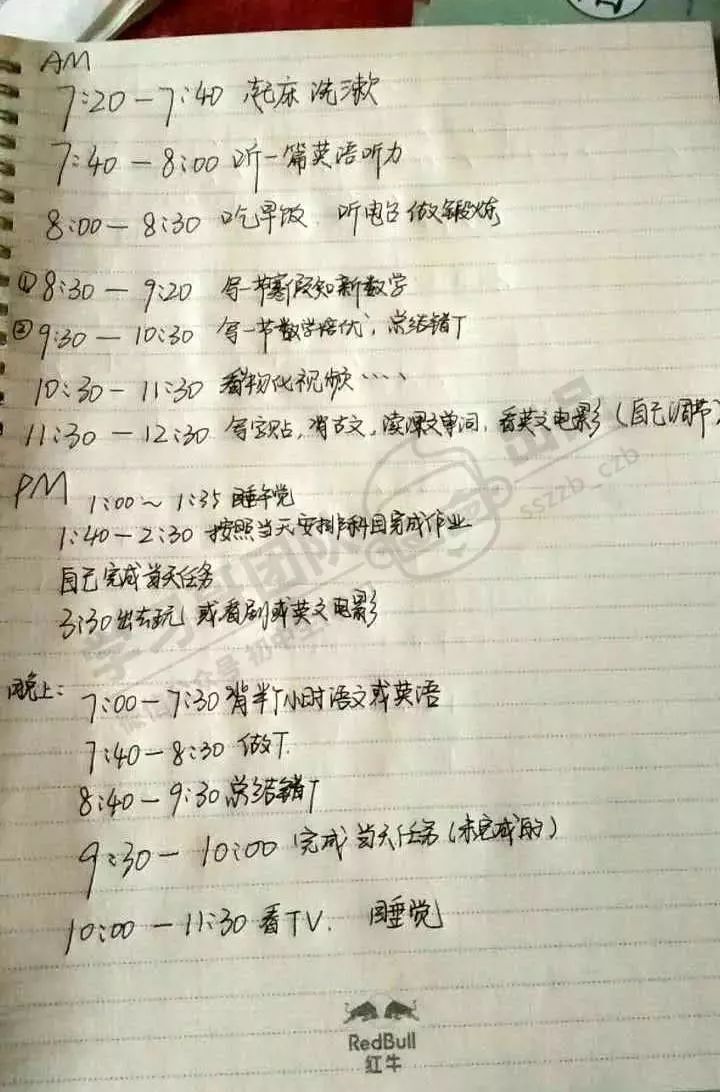 AM
7:20-7:40 起床 洗漱
7:40-8:00 听一篇英语听力
8:00-8:30 吃早饭. 听电台 做锻炼
①8:30-9:20 写一节寒假知新数学
②9:30-10:30 写一节数学培优, 总结错T
10:30-11:30 看物化视频····
11:30-12:30 写字帖, 背古文, 读课文单词, 看英文电影(自己调节)
PM 1:00~1:35 睡午觉
1:40-2:30 按照当天安排科目完成作业
自己完成当天任务
3:30 出去玩 或看剧或英文电影
晚上: 7:00-7:30 背半个小时语文或英语
7:40-8:30 做T.
8:40-9:30 总结错T
9:30-10:00 完成当天任务(未完成的)
10:00-11:30 看TV. 睡觉
RedBull
红牛
学习 团队 出品
微信公众号 初中生 sszzb_czb